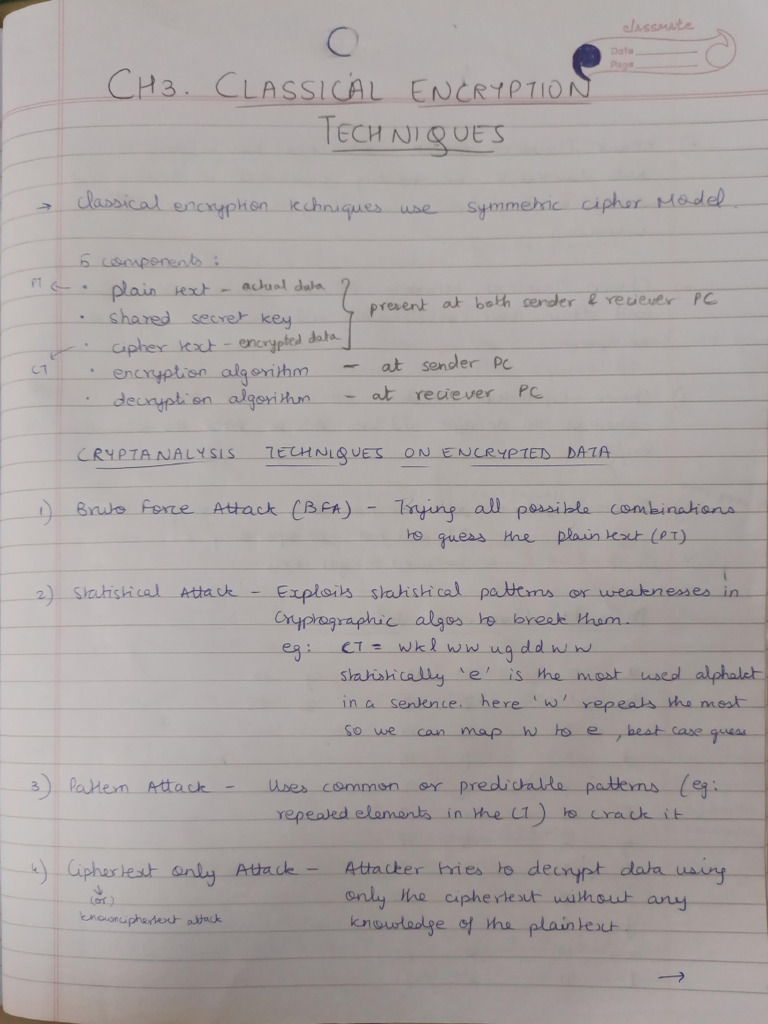 classmate
Date
Page
CH3. CLASSICAL ENCRYPTION
TECHNIQUES
→ Classical encryption techniques use symmetric cipher Model.
5 components :
PT ← • plain text - actual data
• shared secret key
} present at both sender & reciever PC
CT ← • cipher text - encrypted data
• encryption algorithm - at sender PC
• decryption algorithm - at reciever PC
CRYPTANALYSIS TECHNIQUES ON ENCRYPTED DATA
1) Brute Force Attack (BFA) - Trying all possible combinations
to guess the plaintext (PT)
2) Statistical Attack - Exploits statistical patterns or weaknesses in
Cryptographic algos to break them.
eg: CT = wkl ww ug ddw w
statistically 'e' is the most used alphabet
in a sentence. here 'w' repeats the most
so we can map w to e , best case guess
3) Pattern Attack - Uses common or predictable patterns (eg:
repeated elements in the CT) to crack it
4) Ciphertext only Attack - Attacker tries to decrypt data using
↓
(or)
only the ciphertext without any
knownciphertext attack
knowledge of the plaintext.
→